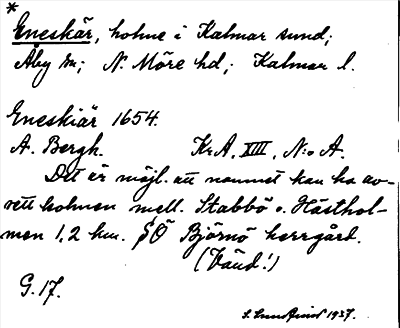 *
Eneskär, holme i Kalmar sund;
Åby sn; N. Möre hd; Kalmar l.
Eneskiär 1654.
A. Bergh. Kr.A. XIII, N:o A.
Det är möjl. att namnet kan ha av-
sett holmen mell. Stabbö o. Hästhol-
men 1,2 km. SÖ Björnö herrgård.
(Vänd!)
G. 17.
1937.